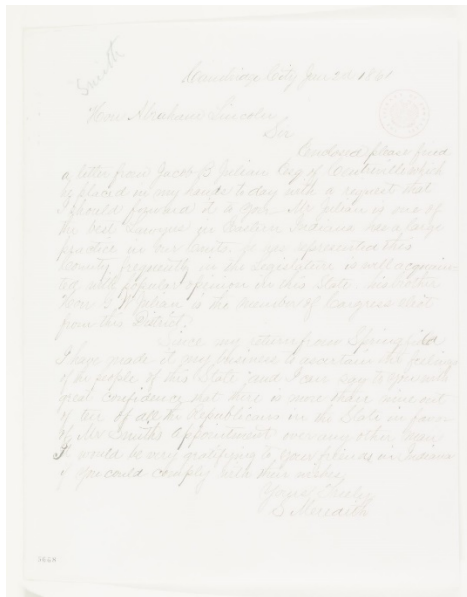 Smith
Cambridge City Jan 2d 1861
Hon Abraham Lincoln
Sir
Enclosed please find
a letter from Jacob B Julian Esq of Centreville which
he placed in my hands to day with a request that
I should forward it to you. Mr Julian is one of
the best Lawyers in Eastern Indiana has a large
practice in our Courts, he has represented this
County frequently in the Legislature is well acquain
ted with popular opinion in this State his brother
Hon G W Julian is the member of Congress elect
from this District.
Since my return from Springfield
I have made it my business to ascertain the feelings
of the people of this State and I can say to you with
great confidence that there is more than nine out
of ten of all the Republicans in the State in favor
of Mr Smith's appointment over any other man
It would be very gratifying to your friends in Indiana
if you could comply with their wishes
Yours Truly
S Meredith